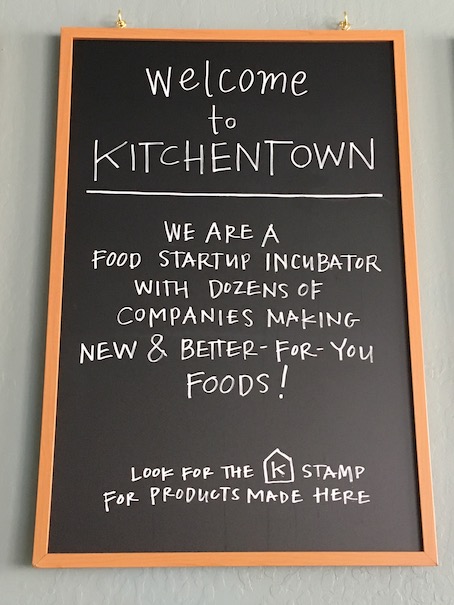 Welcome
to
KITCHENTOWN
WE ARE A
FOOD STARTUP INCUBATOR
WITH DOZENS OF
COMPANIES MAKING
NEW & BETTER-FOR-YOU
FOODS!
LOOK FOR THE K STAMP
FOR PRODUCTS MADE HERE